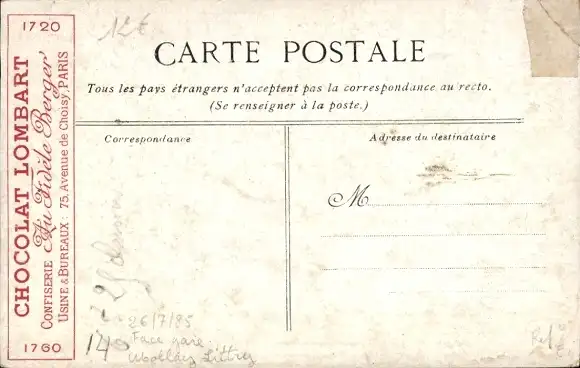 1720
CHOCOLAT LOMBART
CONFISERIE Au Fidèle Berger
USINE & BUREAUX : 75. Avenue de Choisy, PARIS
1760
12€
CARTE POSTALE
Tous les pays étrangers n'acceptent pas la correspondance au recto.
(Se renseigner à la poste.)
Correspondance
Adresse du destinataire
M
26/7/85
Face gare
140